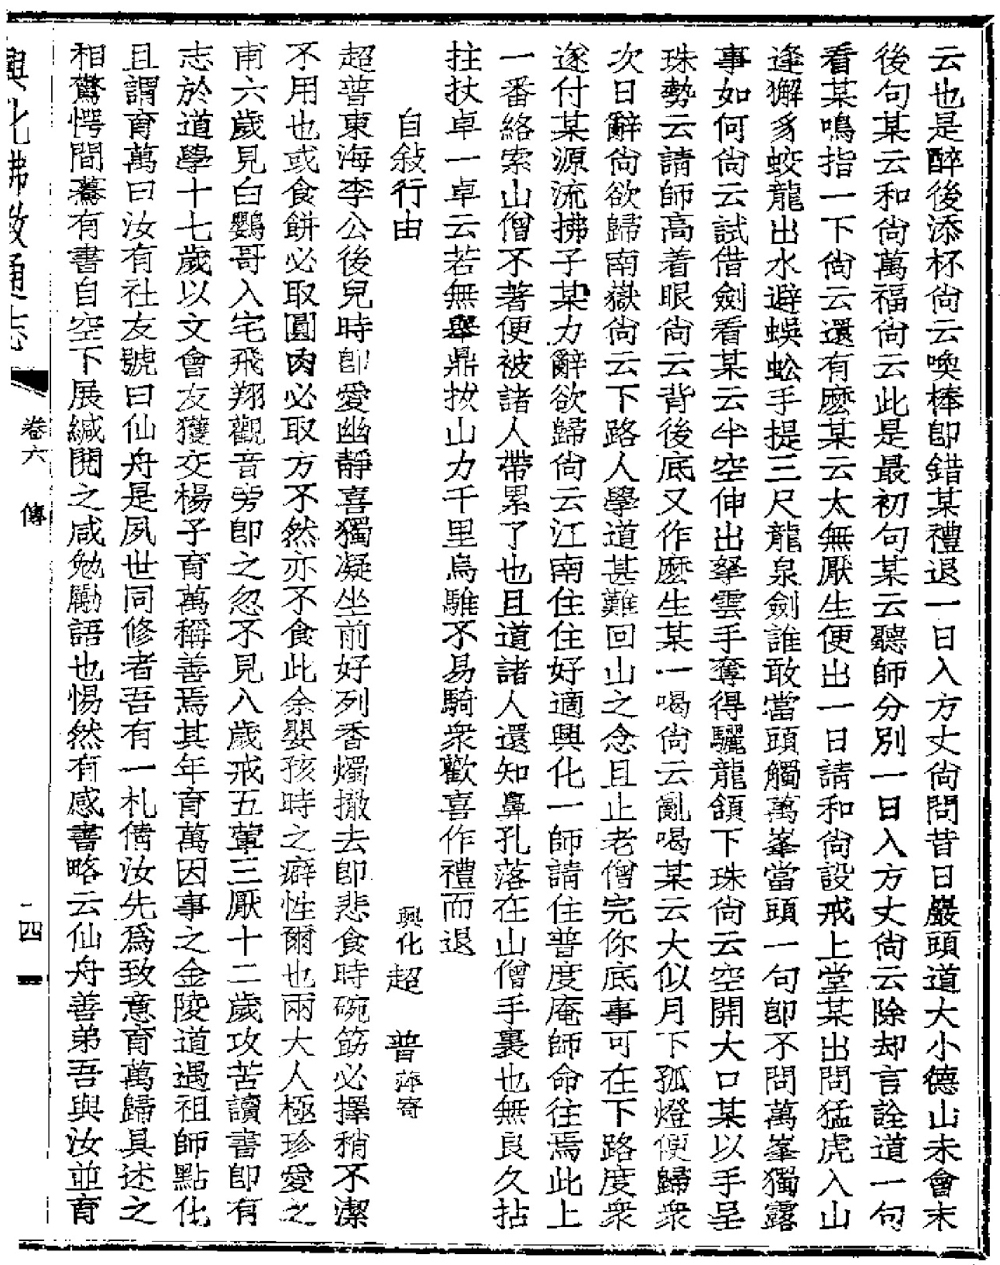 云也是醉後添杯尙云喚棒卽錯某禮退一日入方丈尙問昔日巖頭道大小德山未會末
後句某云和尙萬福尙云此是最初句某云聽師分別一日入方丈尙云除却言詮道一句
看某鳴指一下尙云還有麽某云太無厭生便出一日請和尙設戒上堂某出問猛虎入山
逢獬豸蛟龍出水避蜈蚣手提三尺龍泉劍誰敢當頭觸萬峯當頭一句卽不問萬峯獨露
事如何尙云試借劍看某云半空伸出拏雲手奪得驪龍頷下珠尙云空開大口某以手呈
珠勢云請師高着眼尙云背後底又作麽生某一喝尙云亂喝某云大似月下孤燈便歸衆
次日辭尙欲歸南嶽尙云下路人學道甚難回山之念且止老僧完你底事可在下路度衆
遂付某源流拂子某力辭欲歸尙云江南住住好適興化一師請住普度庵師命往焉此上
一番絡索山僧不著便被諸人帶累了也且道諸人還知鼻孔落在山僧手裏也無良久拈
拄杖卓一卓云若無舉鼎拔山力千里烏騅不易騎衆歡喜作禮而退
自敍行由
興化超普萍寄
超普東海李公後兒時卽愛幽靜喜獨凝坐前好列香燭撤去卽悲食時碗筯必擇稍不潔
不用也或食餠必取圓肉必取方不然亦不食此余嬰孩時之癖性爾也兩大人極珍愛之
甫六歲見白鸚哥入宅飛翔觀音旁卽之忽不見八歲戒五葷三厭十二歲攻苦讀書卽有
志於道學十七歲以文會友獲交楊子育萬稱善焉其年育萬因事之金陵道遇祖師點化
且謂育萬曰汝有社友號曰仙舟是夙世同修者吾有一札倩汝先爲致意育萬歸具述之
相驚愕間驀有書自空下展緘閱之咸勉勵語也惕然有感書略云仙舟善弟吾與汝並育
興化佛敎通志
卷六
傳
二四